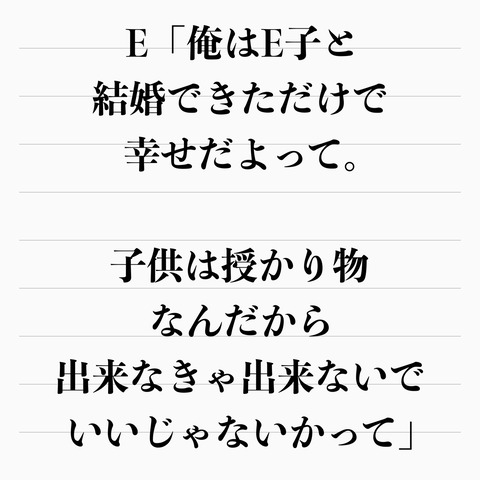 E「俺はE子と
結婚できただけで
幸せだよって。
子供は授かり物
なんだから
出来なきゃ出来ないで
いいじゃないかって」